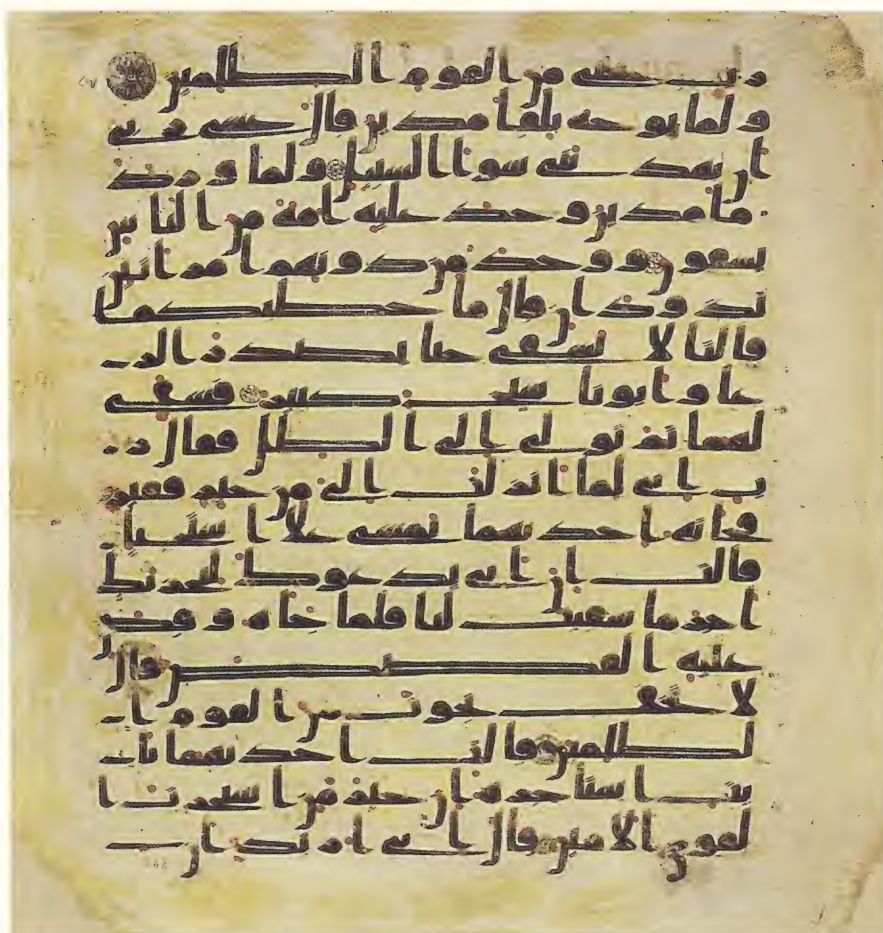 رب نجنى من القوم الظلمين
ولما توجه تلقا مدين قال عسى ربى
ان يهدينى سوا السبيل ولما ورد
ما مدين وجد عليه امة من الناس
يسقون ووجد من دونهم امراتين
تذودان قال ما خطبكما
قالتا لا نسقى حتا يصدر الر
عا وابونا شيخ كبير فسقى
لهما ثم تولى الى الظل فقال ر
ب انى لما انزلت الى من خير فقير
فجاته احديهما تمشى علا استحيا
قالت ان ابى يدعوك ليجزيك
اجر ما سقيت لنا فلما جاه وقص
عليه القصص قال
لا تخف نجوت من القوم ا
لظلمين قالت احديهما يا
بت استاجره ان خير من استجرت ا
لقوى الامين قال انى اريد ان